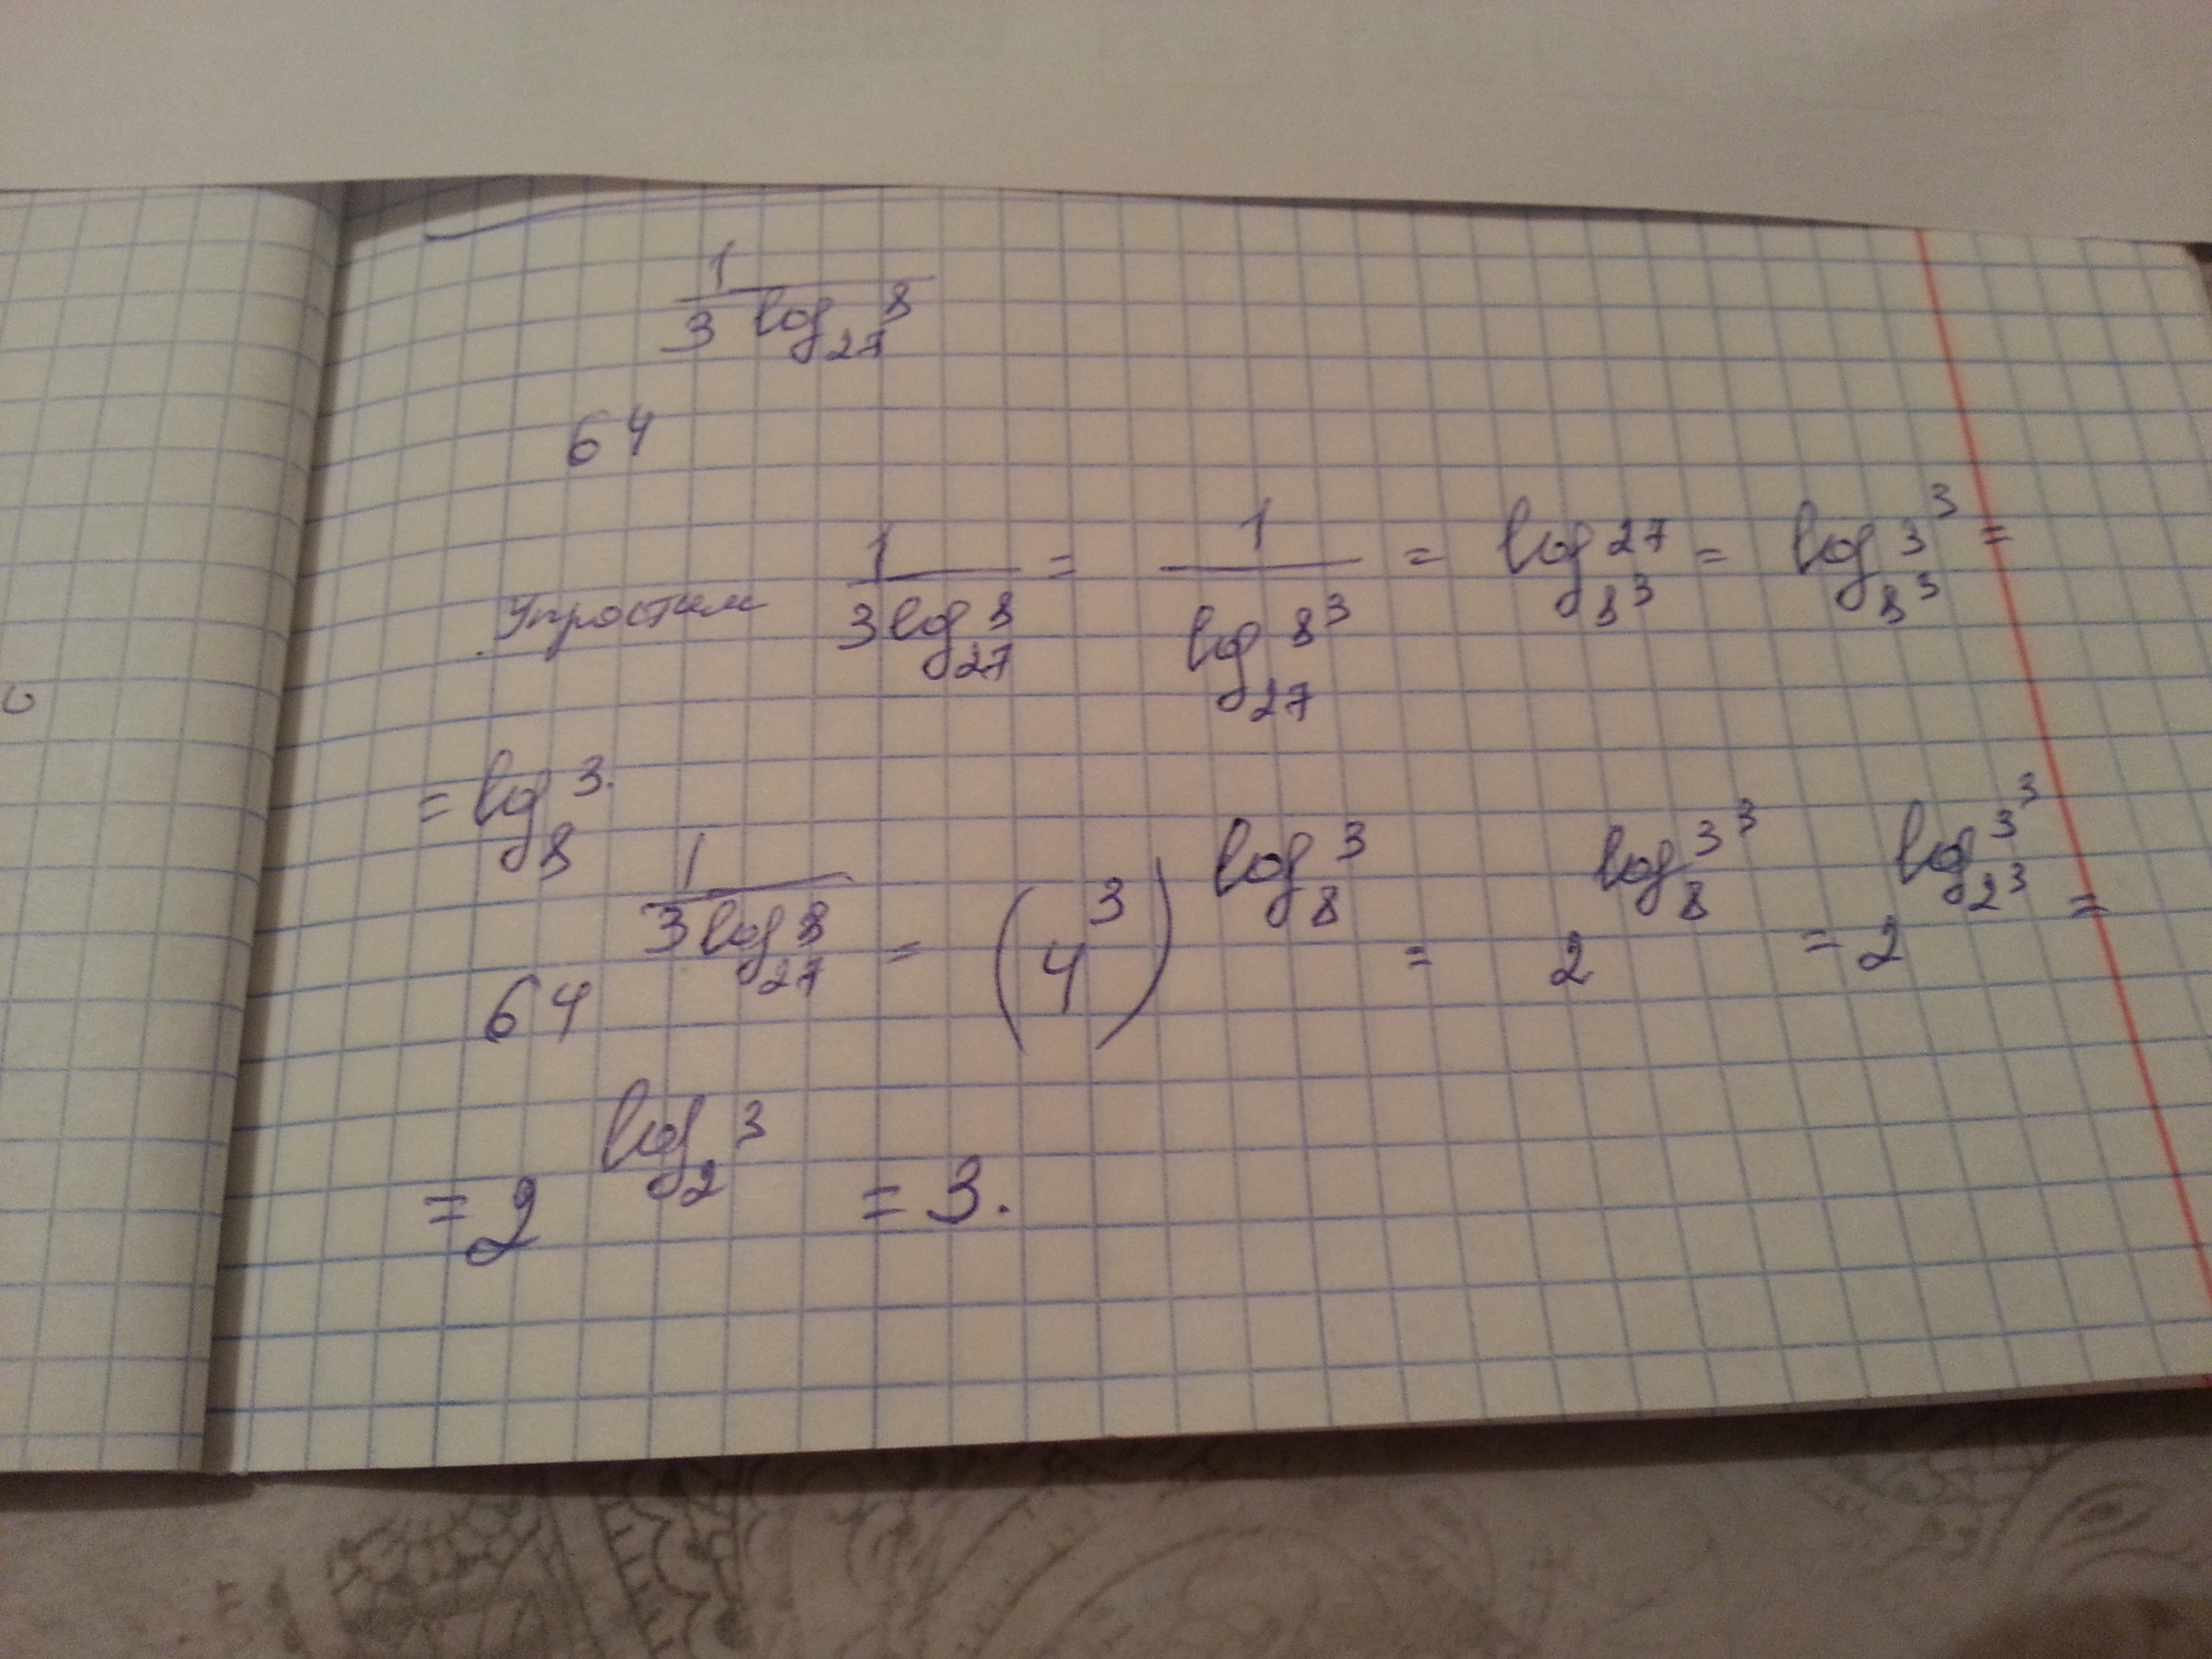 64^(1/(3 log_27 8))
Упростим 1/(3 log_27 8) = 1/(log_27 8^3) = log_8^3 27 = log_8^3 3^3 =
= log_8 3.
64^(1/(3 log_27 8)) = (4^3)^(log_8 3) = 2^(log_8 3^3) = 2^(log_2^3 3^3) =
= 2^(log_2 3) = 3.